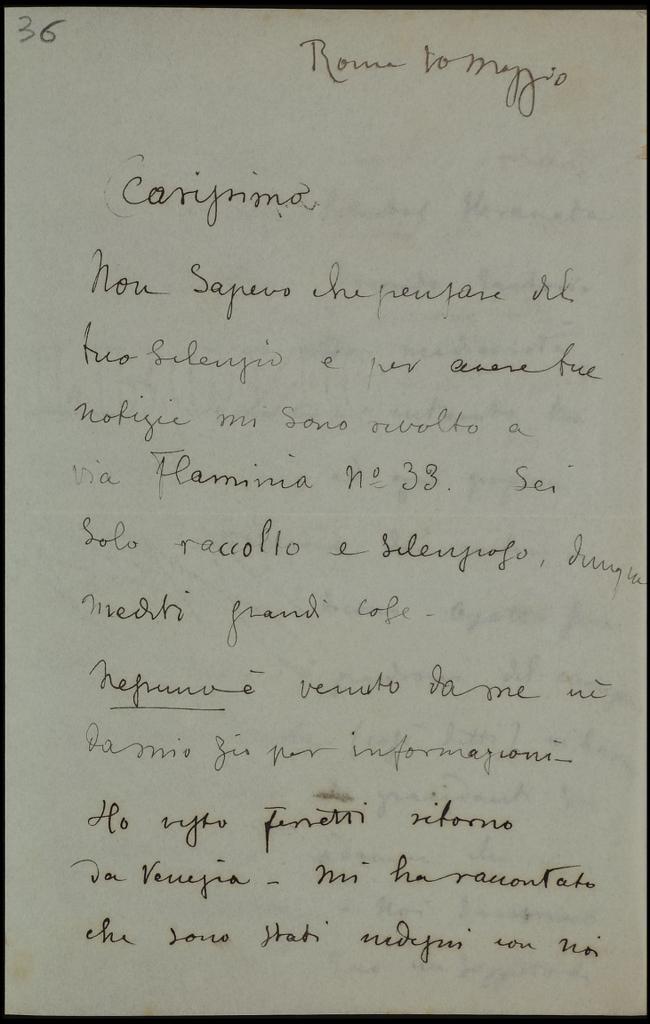 36
Roma 10 Maggio
Carissimo
Non Sapevo che pensare del
tuo silenzio e per avere tue
notizie mi sono rivolto a
via Flaminia Nº 33. Sei
solo raccolto e silenzioso, dunque
mediti grandi cose -
Nessuno è venuto da me nè
da mio zio per informazioni -
Ho visto Ferretti ritorno
da Venezia - Mi ha raccontato
che sono stati indegni con noi